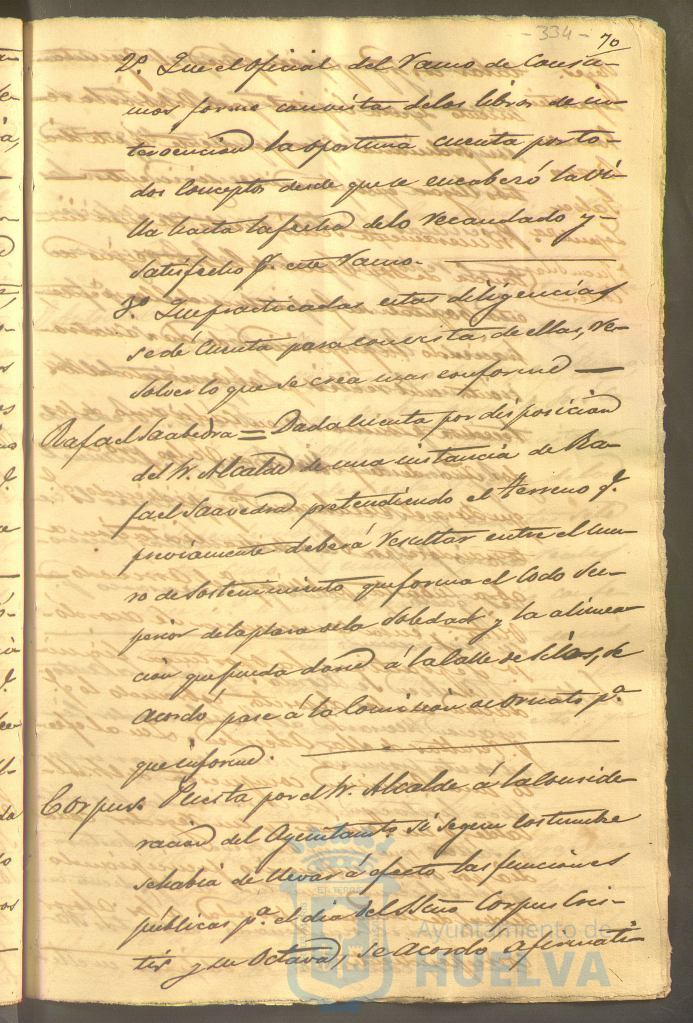 -334-
70
2º. Que el oficial del Ramo de Consu-
mos forme con vista de los libros de in-
tervencion la oportuna cuenta por to-
dos conceptos desde que se encabezó la Vi-
lla hasta la fecha de lo recaudado y
satisfecho pr. este Ramo.
3º. Que practicadas estas diligencias
se dé cuenta para con vista de ellas, re-
solver lo que se crea mas conforme
Rafael Saabedra = Dada cuenta por disposicion
del Sr. Alcalde de una instancia de Ra-
fael Saavedra pretendiendo el terreno q.
previamente deberá resultar entre el mu-
ro de sostenimiento que forma el lado su-
perior de la plaza de la Soledad y la alinea-
cion que pueda darse á la calle de Silos, se
acordo pase á la Comision de Ornato pª.
que informe.
Corpus. Puesta por el Sr. Alcalde á la conside-
racion del Ayuntamto. si segun costumbre
se habia de llevar á efecto las funciones
públicas pª. el dia del SSmo Corpus Cris-
tis y su Octava, se acordo afirmati-
Ayuntamiento de
HUELVA